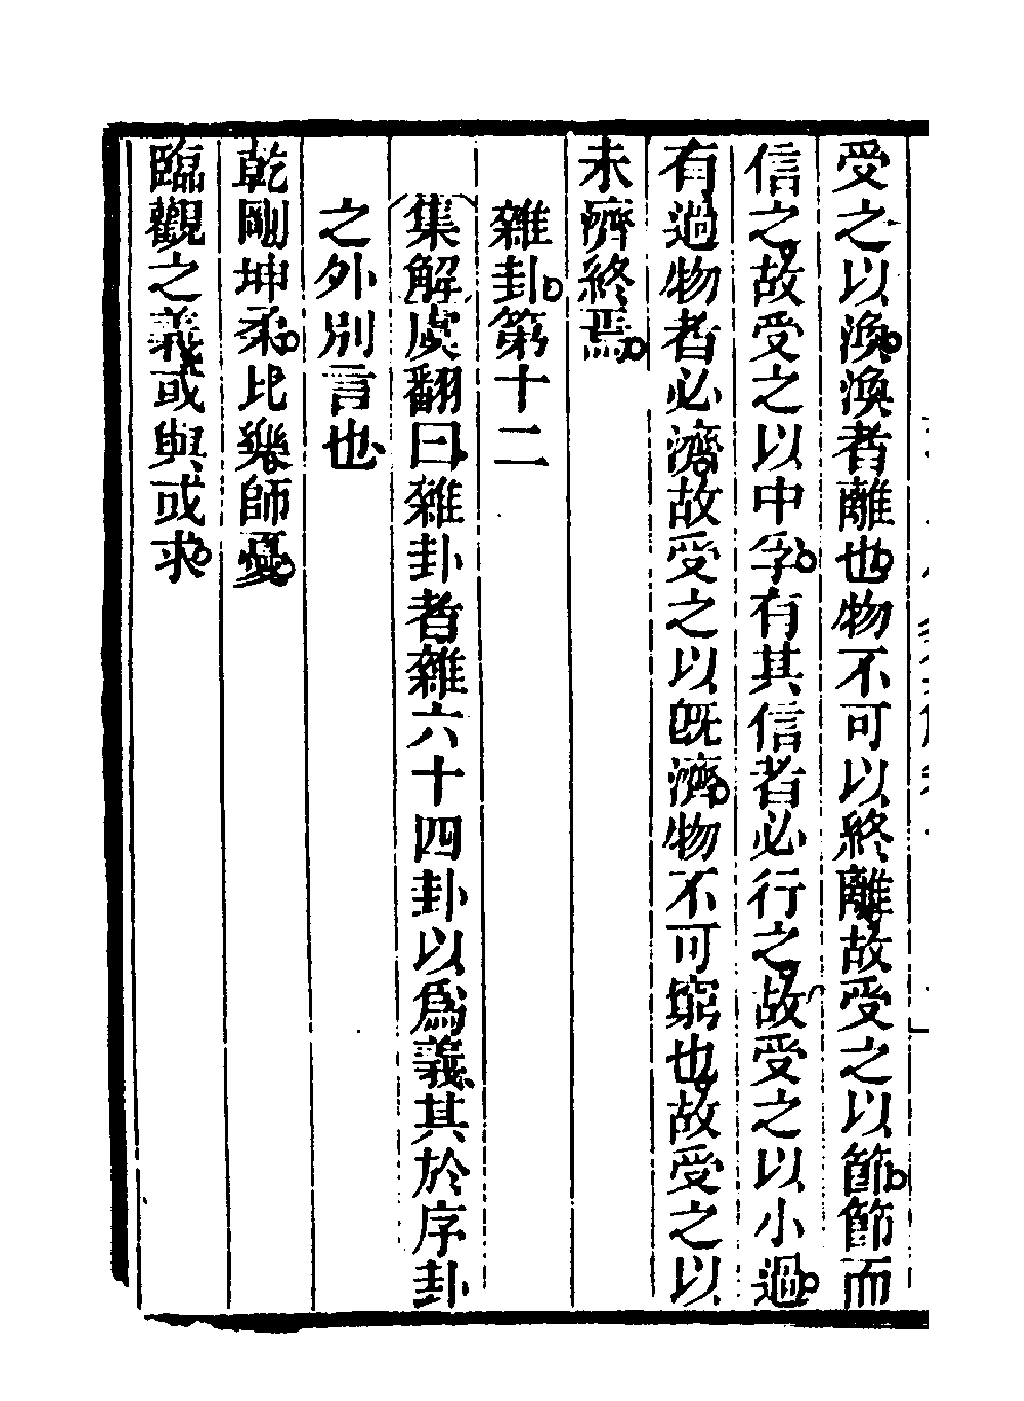 受之以渙渙者離也物不可以終離故受之以節節而
信之故受之以中孚有其信者必行之故受之以小過
有過物者必濟故受之以旣濟物不可窮也故受之以
未濟終焉
雜卦第十二
集解虞翻曰雜卦者雜六十四卦以爲義其於序卦
之外別言也
乾剛坤柔比樂師憂
臨觀之義或與或求